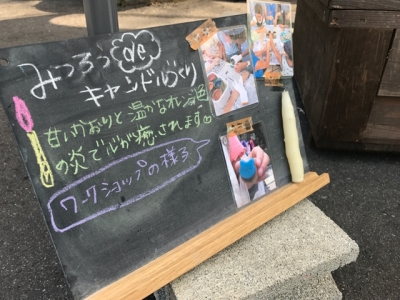 みつろう de
キャンドルづくり
甘いかおりと温かなオレンジ色
の炎で心が癒されます
ワークショップの様子